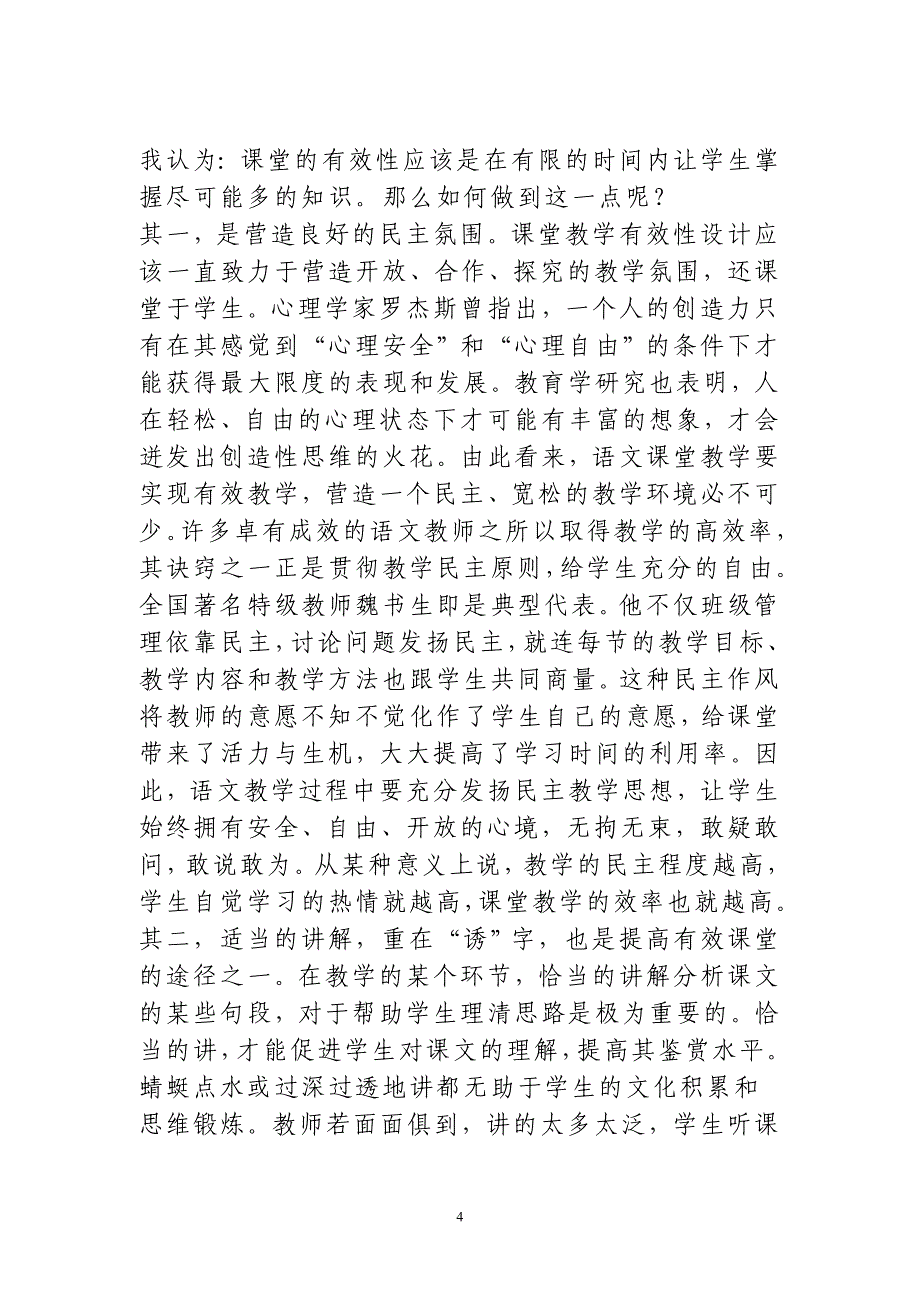 我认为：课堂的有效性应该是在有限的时间内让学生掌
握尽可能多的知识。那么如何做到这一点呢？
其一，是营造良好的民主氛围。课堂教学有效性设计应
该一直致力于营造开放、合作、探究的教学氛围，还课
堂于学生。心理学家罗杰斯曾指出，一个人的创造力只
有在其感觉到“心理安全”和“心理自由”的条件下才
能获得最大限度的表现和发展。教育学研究也表明，人
在轻松、自由的心理状态下才可能有丰富的想象，才会
迸发出创造性思维的火花。由此看来，语文课堂教学要
实现有效教学，营造一个民主、宽松的教学环境必不可
少。许多卓有成效的语文教师之所以取得教学的高效率，
其诀窍之一正是贯彻教学民主原则，给学生充分的自由。
全国著名特级教师魏书生即是典型代表。他不仅班级管
理依靠民主，讨论问题发扬民主，就连每节的教学目标、
教学内容和教学方法也跟学生共同商量。这种民主作风
将教师的意愿不知不觉化作了学生自己的意愿，给课堂
带来了活力与生机，大大提高了学习时间的利用率。因
此，语文教学过程中要充分发扬民主教学思想，让学生
始终拥有安全、自由、开放的心境，无拘无束，敢疑敢
问，敢说敢为。从某种意义上说，教学的民主程度越高，
学生自觉学习的热情就越高，课堂教学的效率也就越高。
其二，适当的讲解，重在“诱”字，也是提高有效课堂
的途径之一。在教学的某个环节，恰当的讲解分析课文
的某些句段，对于帮助学生理清思路是极为重要的。恰
当的讲，才能促进学生对课文的理解，提高其鉴赏水平。
蜻蜓点水或过深过透地讲都无助于学生的文化积累和
思维锻炼。教师若面面俱到，讲的太多太泛，学生听课
4